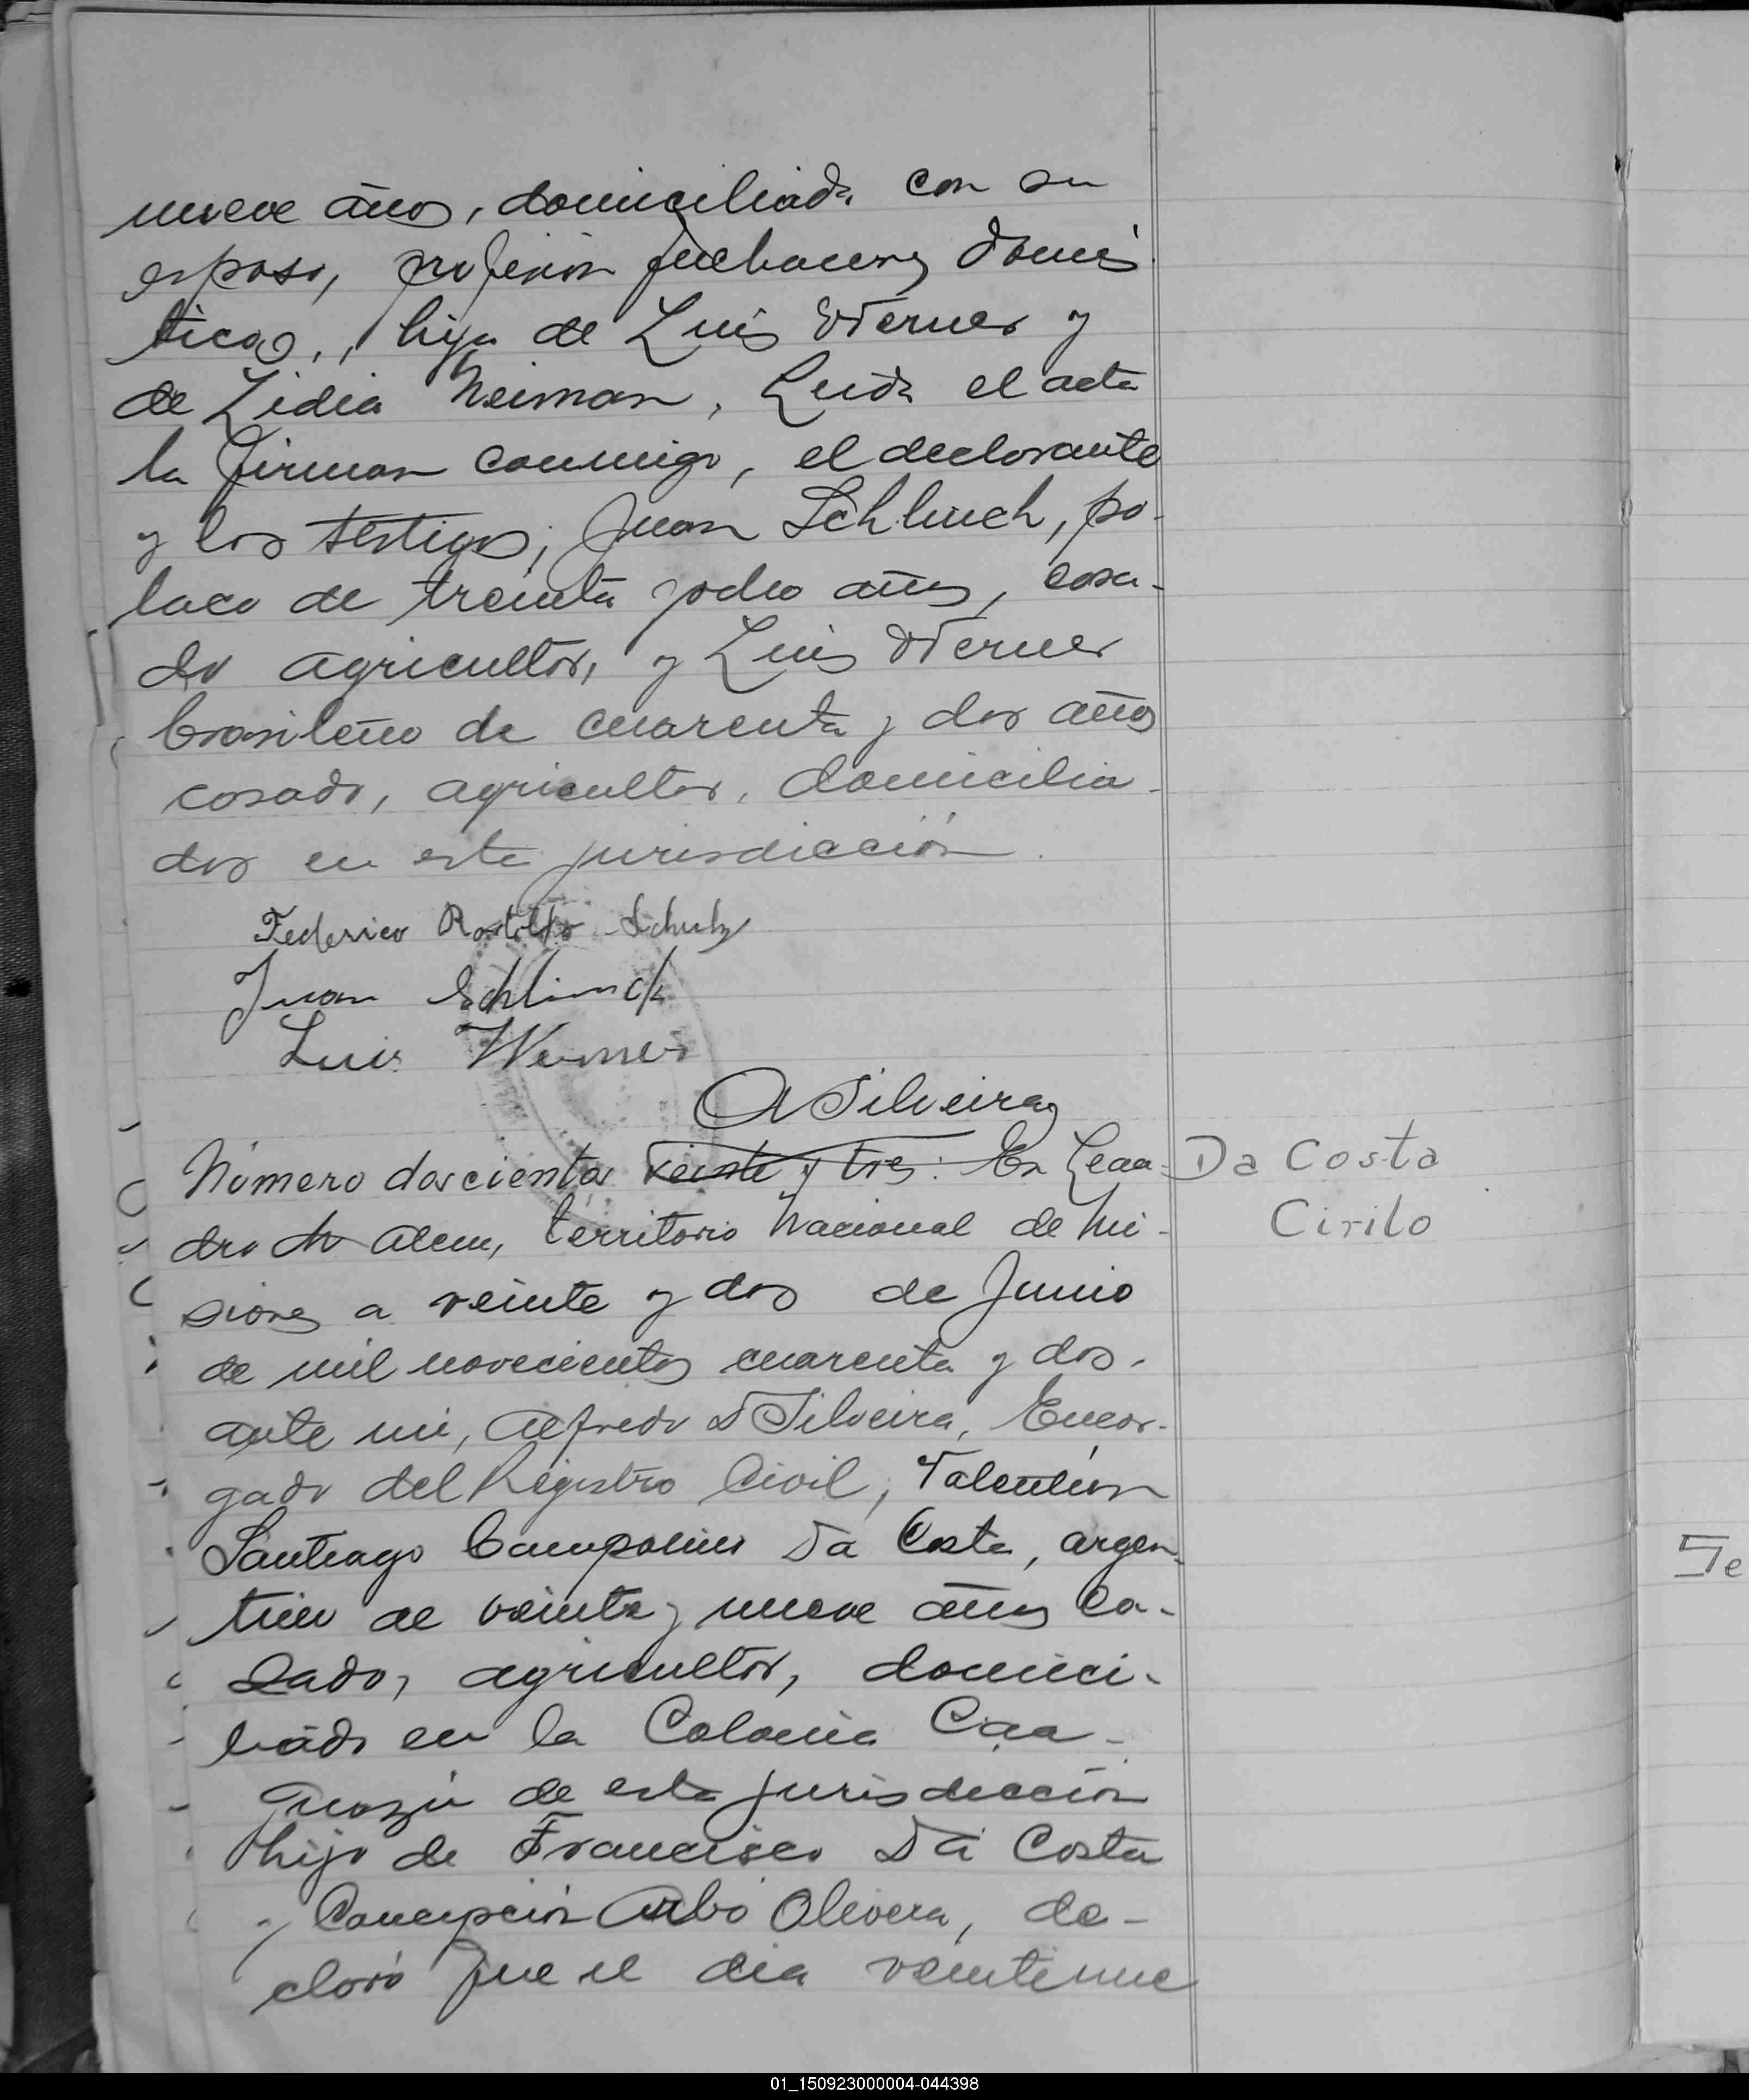 nueve años, domiciliada con su
esposo, profesión quehaceres domés
ticos,, hija de Luis Werner y
de Lidia Neiman, Leida el acta
la firman conmigo, el declarante
y los testigos; Juan Schlinck, po-
laco de treinta y ocho años, casa-
do agricultor, y Luis Werner
brasileño de cuarenta y dos años
casado, agricultor, domicilia-
dos en esta jurisdicción.
Federico Rodolfo Schulz
Juan Schlinck
Luis Werner
A Silveira
Número doscientos veinte y tres: En Lean-
dro N Alem, territorio Nacional de Mi-
siones a veinte y dos de Junio
de mil novecientos cuarenta y dos.
ante mi, Alfredo D Silveira, Encar-
gado del Registro Civil, Valentín
Santiago Da Costa, argen-
tino de veinte y nueve años ca-
sado, agricultor, domici-
liado en la Colonia Caa-
Guazú de esta jurisdicción
hijo de Francisco Da Costa
y Concepción Olivera, de-
claró que el dia veintinue
Da Costa
Cirilo
Se
01_150923000004-044398